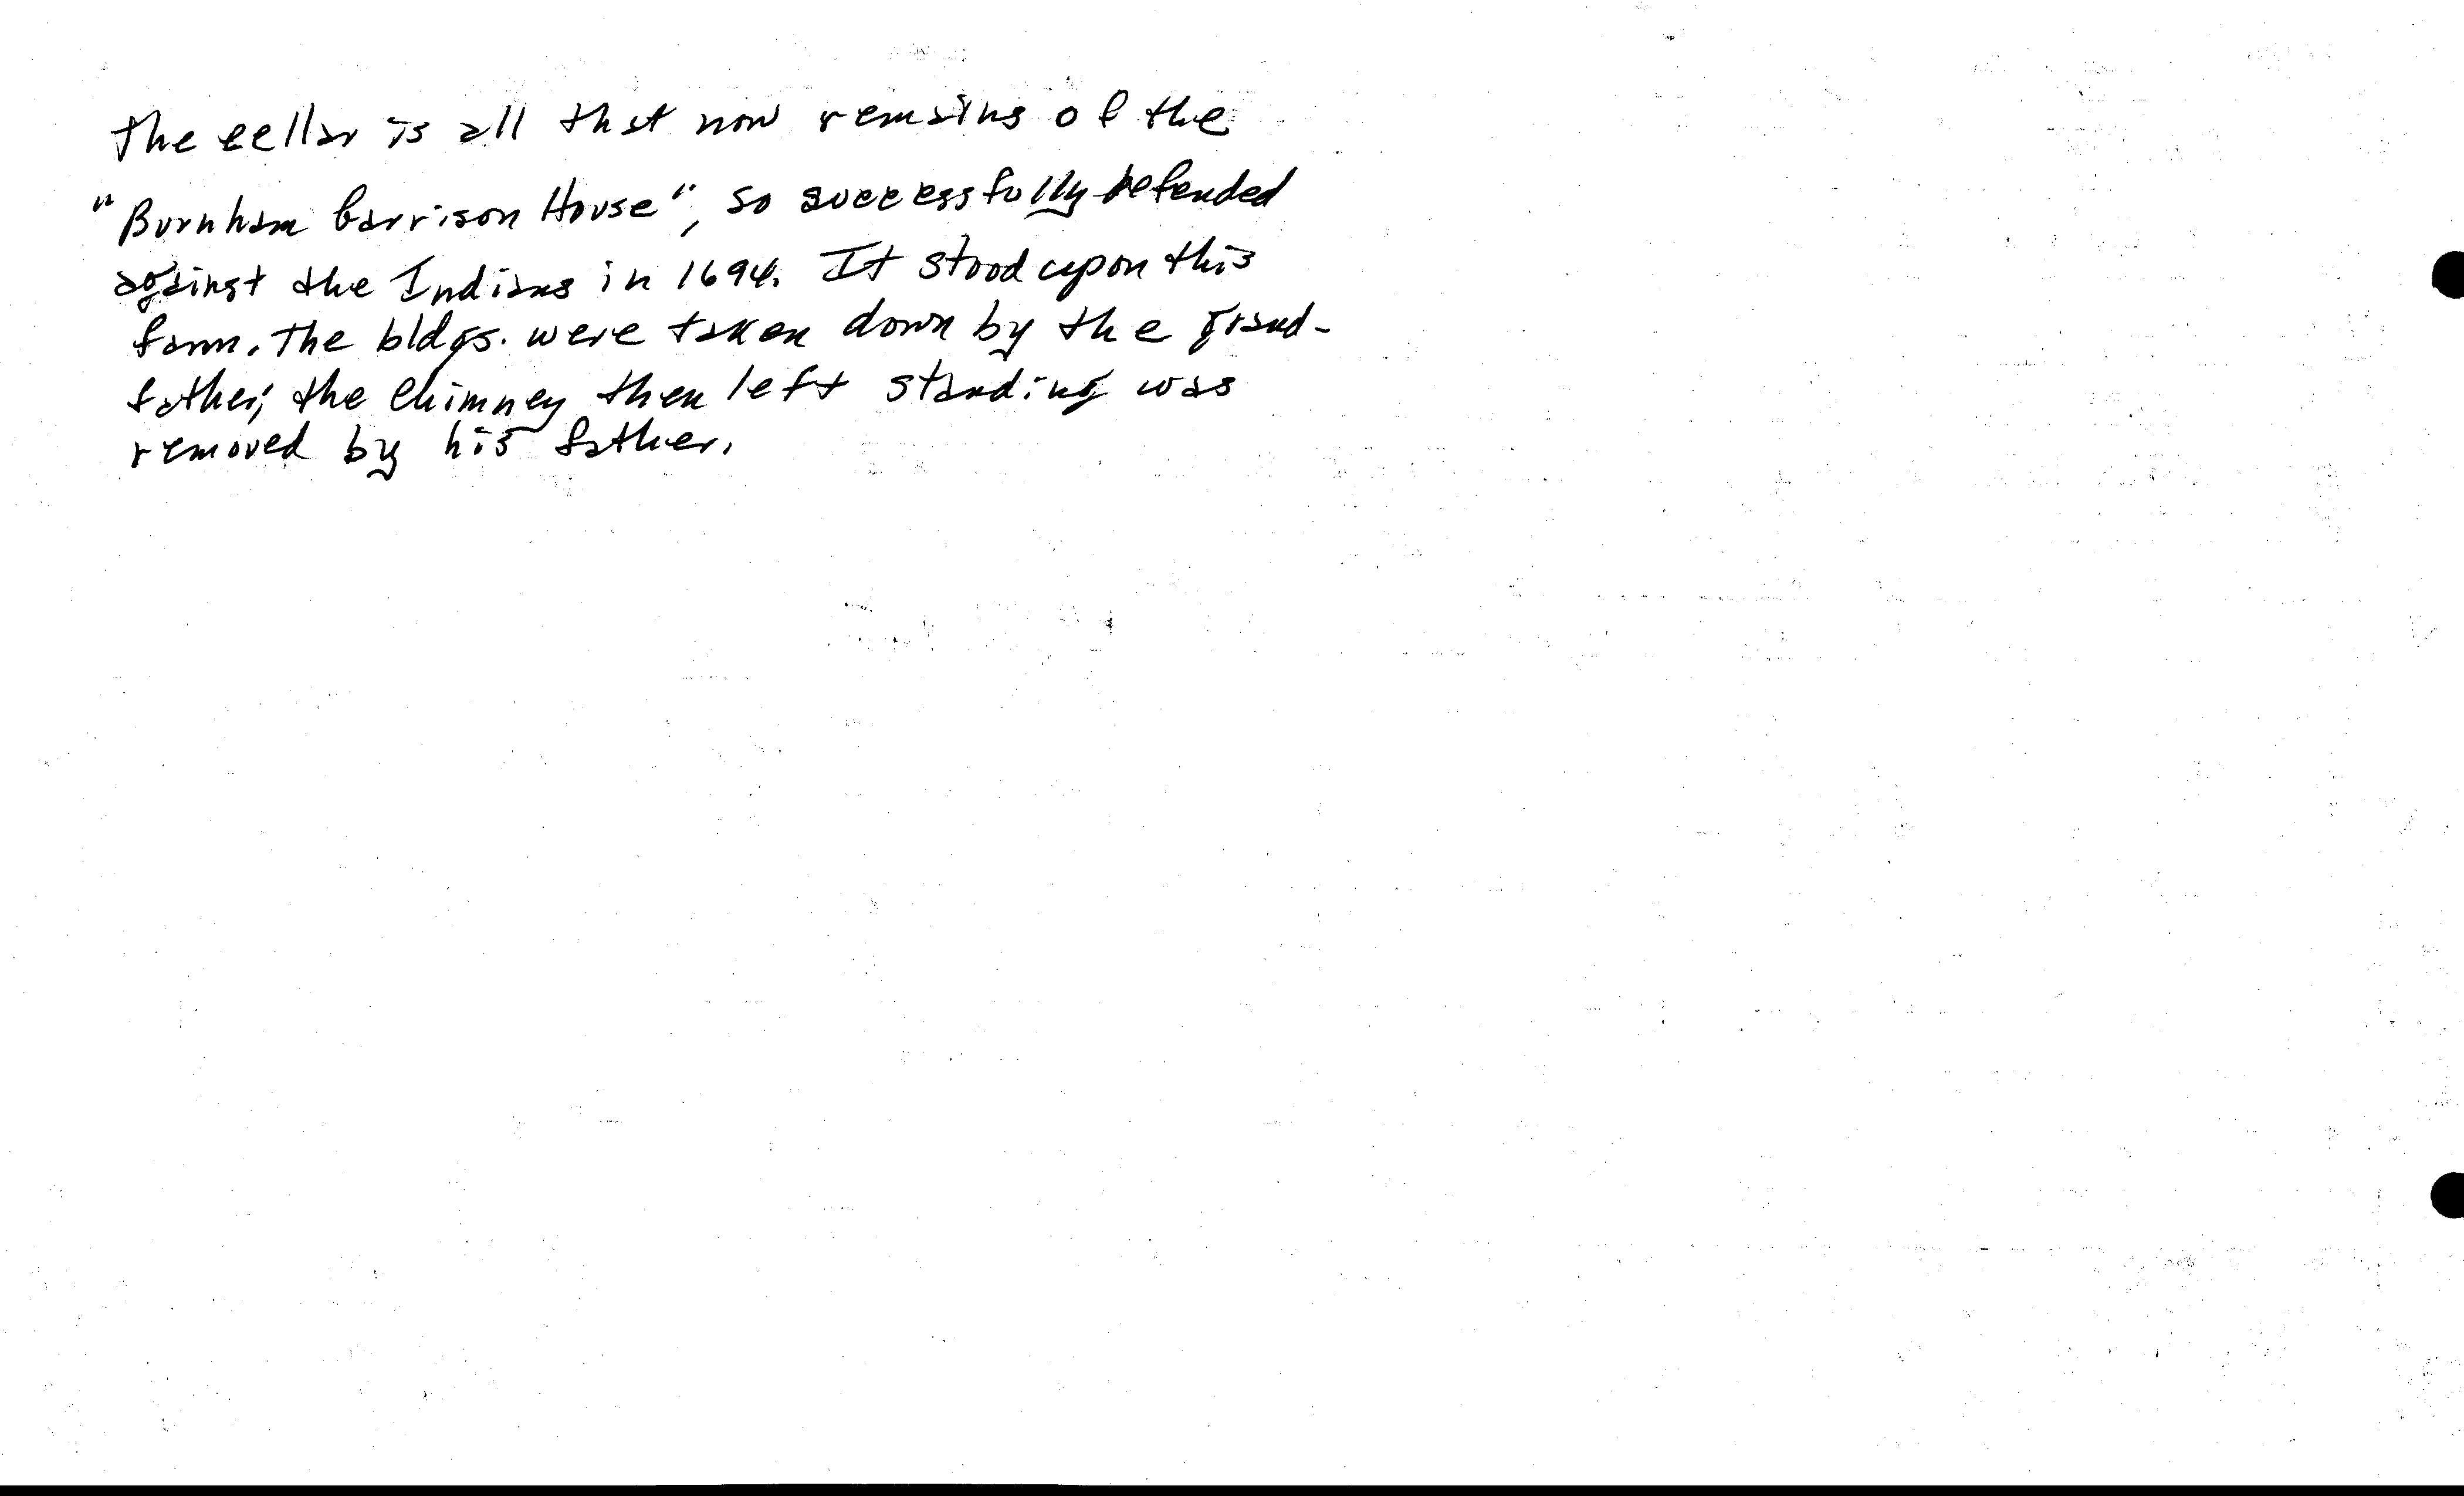 The cellar is all that now remains of the
"Burnham Garrison House", so successfully defended
against the Indians in 1694. It stood upon this
farm. The bldgs. were taken down by the grand-
father; the chimney then left standing was
removed by his father.